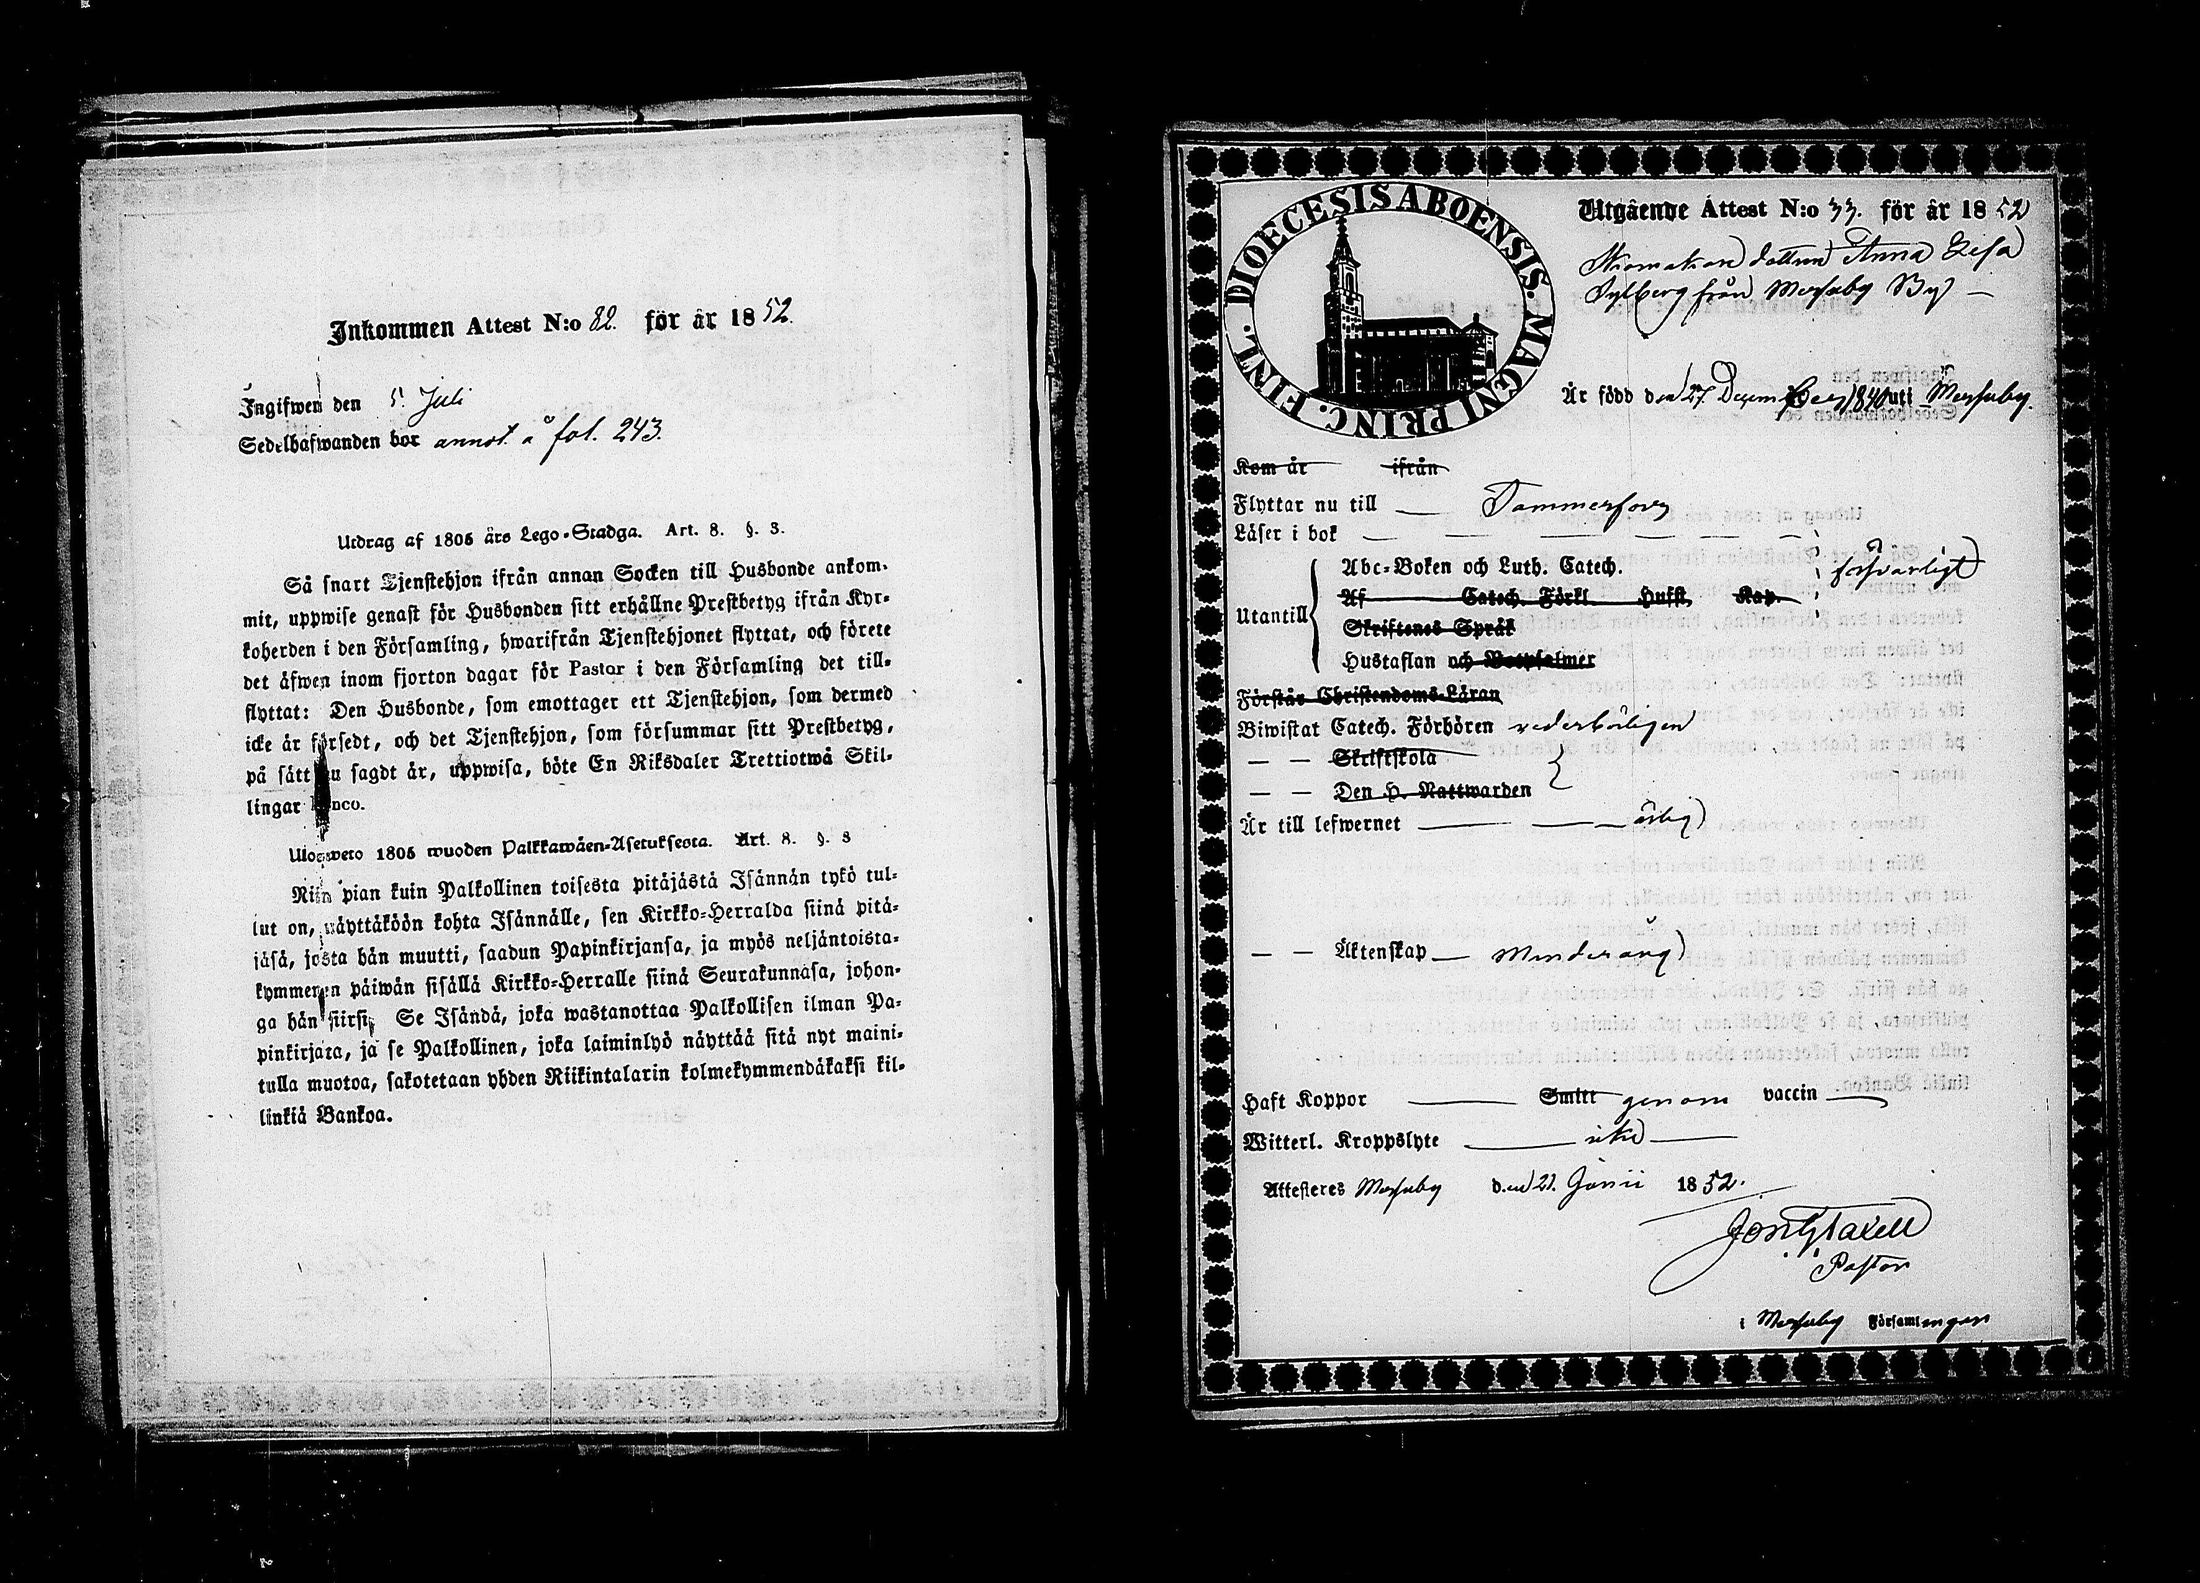 Inkommen Attest N:o 82. för år 1852.
Ingifwen den 5. Juli
Sedelhafwanden bor annot. å fol. 243.
Utdrag af 1805 års Lego-Stadga. Art. 8. §. 3.
Så snart Tjenstehjon ifrån annan Socken till Husbonde ankom-
mit, uppwise genast för Husbonden sitt erhållne Prestbetyg ifrån Kyr-
koherden i den Församling, hwarifrån Tjenstehjonet flyttat, och förete
det äfwen inom fjorton dagar för Pastor i den Församling det till-
flyttat: Den Husbonde, som emottager ett Tjenstehjon, som dermed
icke är försedt, och det Tjenstehjon, som försummar sitt Prestbetyg,
på sätt nu sagdt är, uppwisa, böte En Riksdaler Trettiotwå Skil-
lingar Banco.
Ulosweto 1805 wuoden Palkkawäen-Asetuksesta. Art. 8. §. 3
Niin pian kuin Palkollinen toisesta pitäjästä Isännän tykö tul-
lut on, näyttäköön kohta Isännälle, sen Kirkko-Herralda siinä pitä-
jäsä, josta hän muutti, saadun Papinkirjansa, ja myös neljäntoista-
kymmenen päiwän sisällä Kirkko-Herralle siinä Seurakunnasa, johon-
ga hän siirsi, Se Isändä, joka wastanottaa Palkollisen ilman Pa-
pinkirjata, ja se Palkollinen, joka laiminlyö näyttää sitä nyt maini-
tulla muotoa, sakotetaan yhden Riikintalarin kolmekymmendäkaksi kil-
linkiä Bankoa.
DIOECESIS ABOENSIS. MAGNI PRINC. FINL.
Utgående Attest N:o 33. för år 1852
dottren Anna Lesa
från By
Är född den 27. December 1840 uti
Kom år ifrån
Flyttar nu till Tammerfors
Läser i bok
Abc-Boken och Luth. Catech. försvarligt
Utantill Af Catech. Förkl. Hufst. Kap.
Skriftenes Språk
Hustaflan och Botpsalmer
Förstår Christendoms-Läran
Biwistat Catech. Förhören vederbörligen
— — Skriftskola
— — Den H. Nattwarden
Är till lefwernet ärlig
— — Äktenskap — Minderårig
Haft Koppor Smitt genom vaccin
Witterl. Kroppslyte icke
Attesteres den 21. Junii 1852.
Pastor
i Församlingen